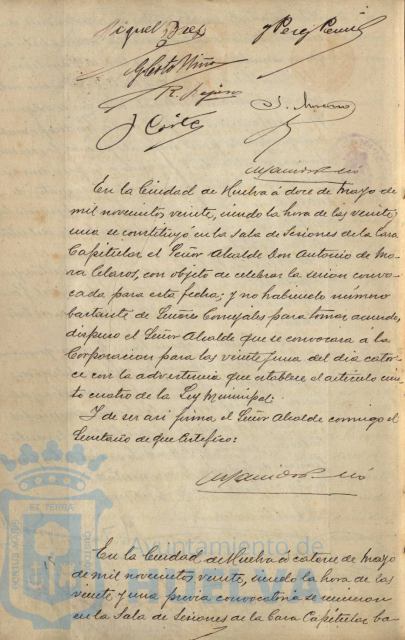 Miguel Báez y Perez Peniche
Gilberto Niño
R. Rajaro
S. Moreno
J. Cortés
En la Ciudad de Huelva á doce de mayo de
mil novecientos veinte, siendo la hora de las veinte y
una se constituyó en la Sala de Sesiones de la Casa
Capitular el Señor Alcalde Don Antonio de Mo-
ra Claros, con objeto de celebrar la sesion convo-
cada para esta fecha; y no habiendo número
bastante de Señores Concejales para tomar acuerdo,
dispuso el Señor Alcalde que se convocara á la
Corporacion para las veinte y una del dia cator-
ce con la advertencia que establece el artículo cien-
to cuatro de la Ley Municipal.
Y de ser asi firma el Señor Alcalde conmigo el
Secretario de que certifico:
En la Ciudad de Huelva á catorce de mayo
de mil novecientos veinte, siendo la hora de las
veinte y una previa convocatoria se reunieron
en la Sala de Sesiones de la Casa Capitular ba-
Ayuntamiento de
HUELVA
PORTUS MARIS
ET TERRA
CUSTODIA